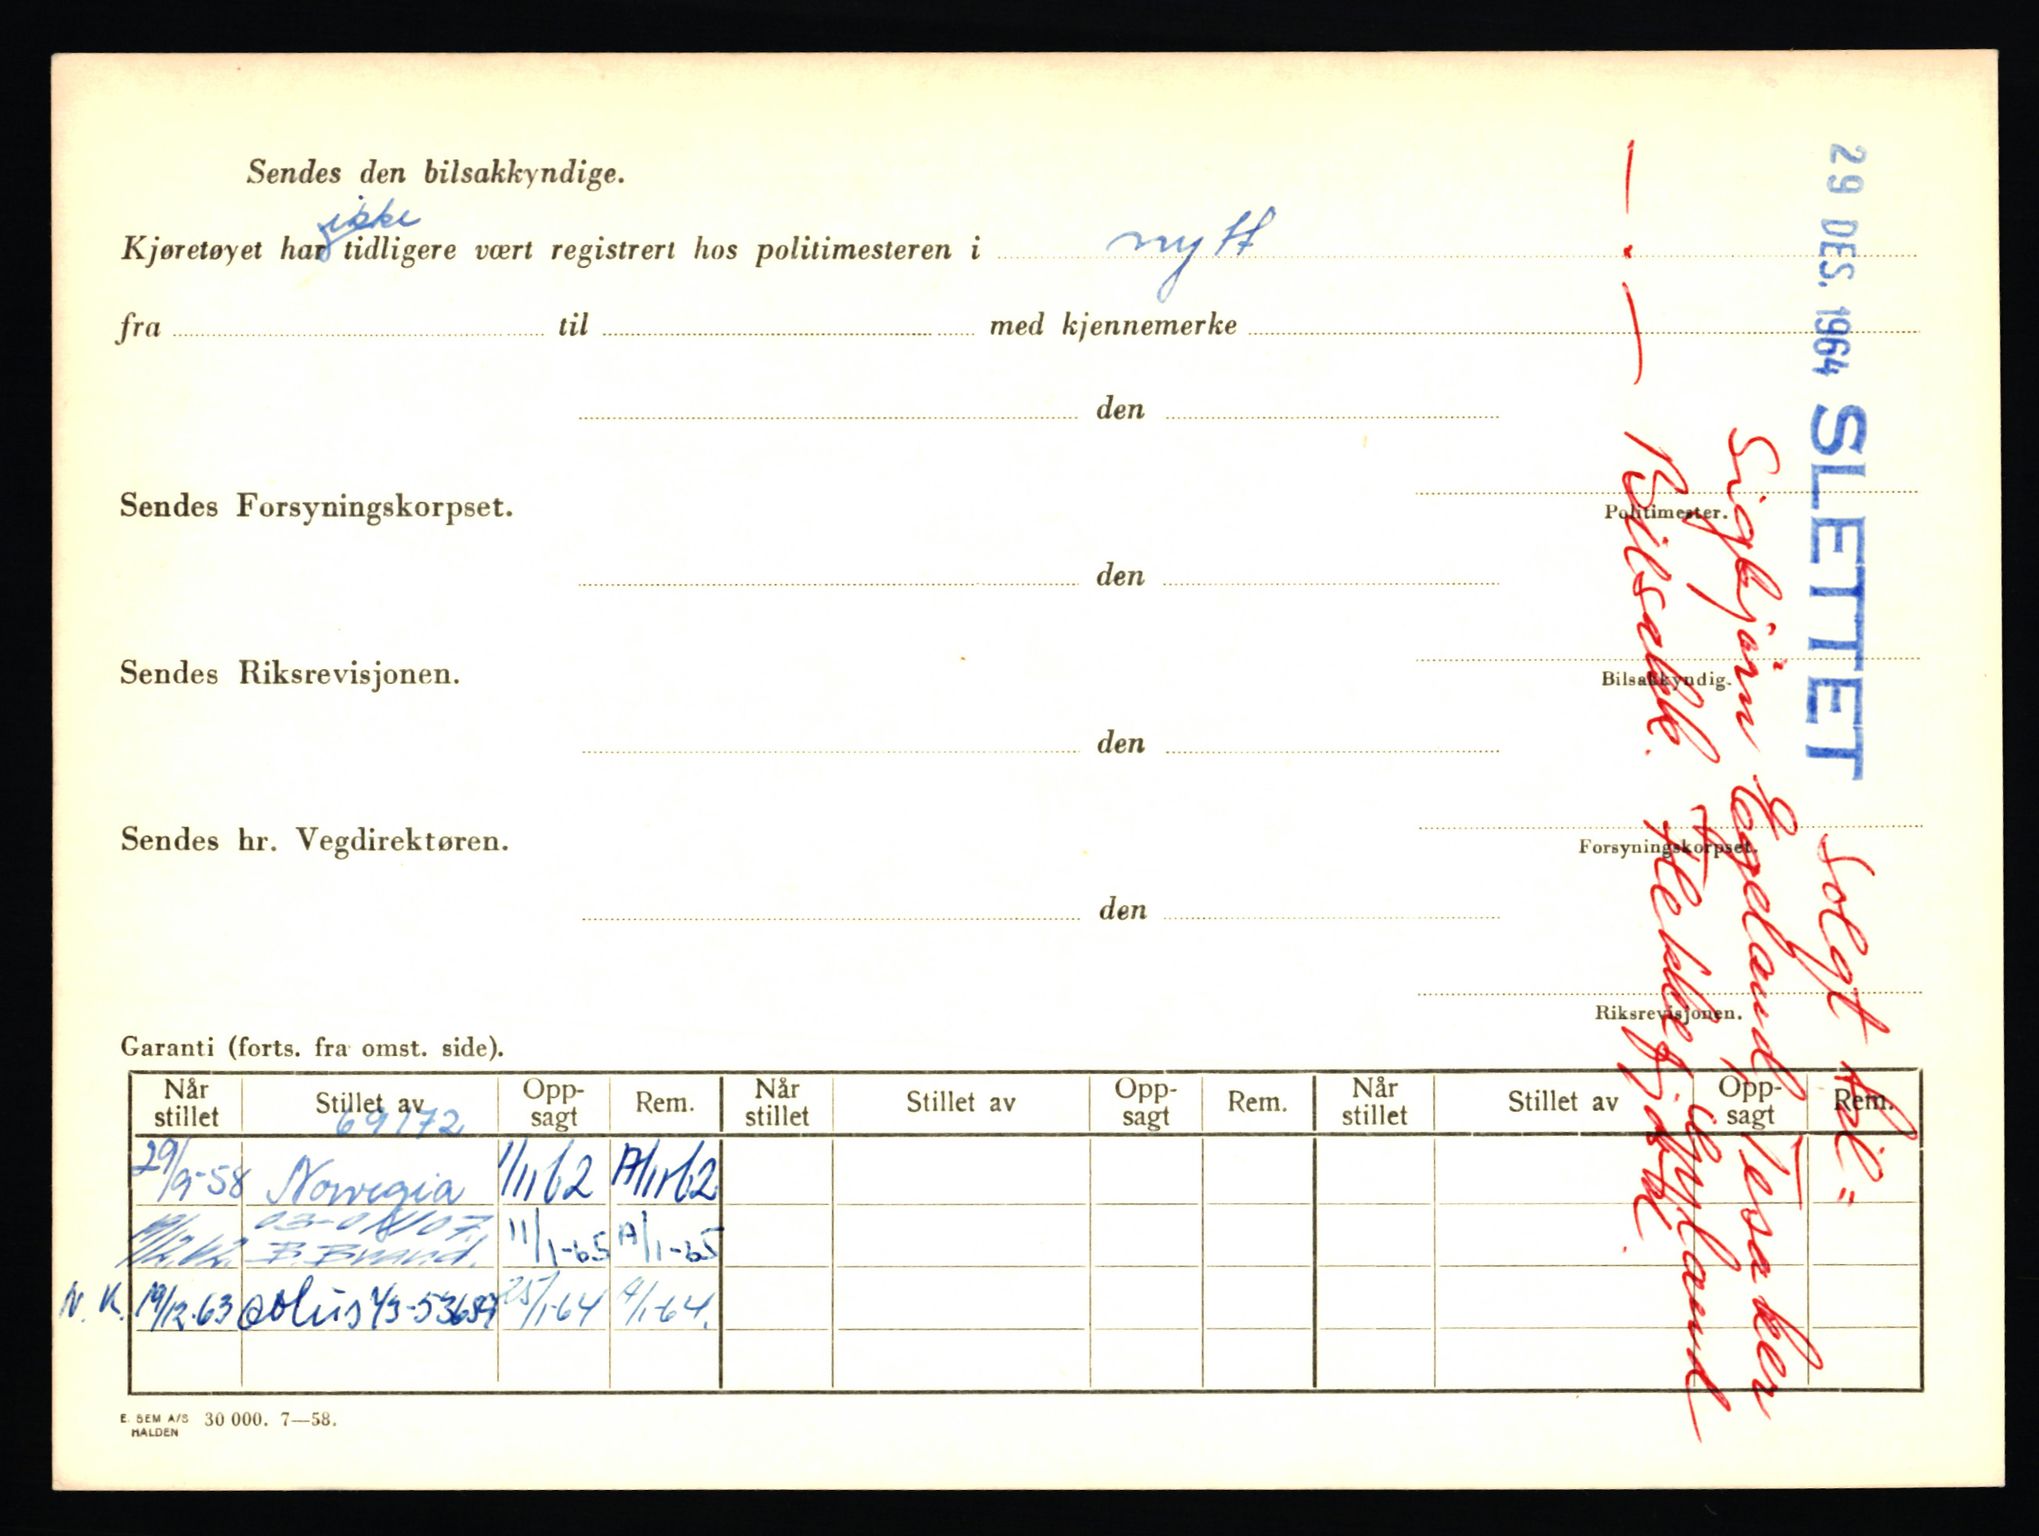 Sendes den bilsakkyndige.
ikke
Kjøretøyet har tidligere vært registrert hos politimesteren i nytt
fra til med kjennemerke
den
Politimester.
Sendes Forsyningskorpset.
den
Bilsakkyndig.
Sendes Riksrevisjonen.
den
Forsyningskorpset.
Sendes hr. Vegdirektøren.
den
Riksrevisjonen.
29 DES. 1964 SLETTET
Solgt til =
Sigbjørn Egeland,
Bilsakk. Flekkefjord.
Garanti (forts. fra omst. side).
Når stillet Stillet av Opp-sagt Rem. Når stillet Stillet av Opp-sagt Rem. Når stillet Stillet av Opp-sagt Rem.
69172
29/9-58 Norvegia 1/11 62 17/11-62
B. Brand. 11/1-65 /1-65
N. K. 19/12-63 Æolus 43-53657 25/1-64 /1-64.
E. SEM A/S 30 000. 7—58.
HALDEN